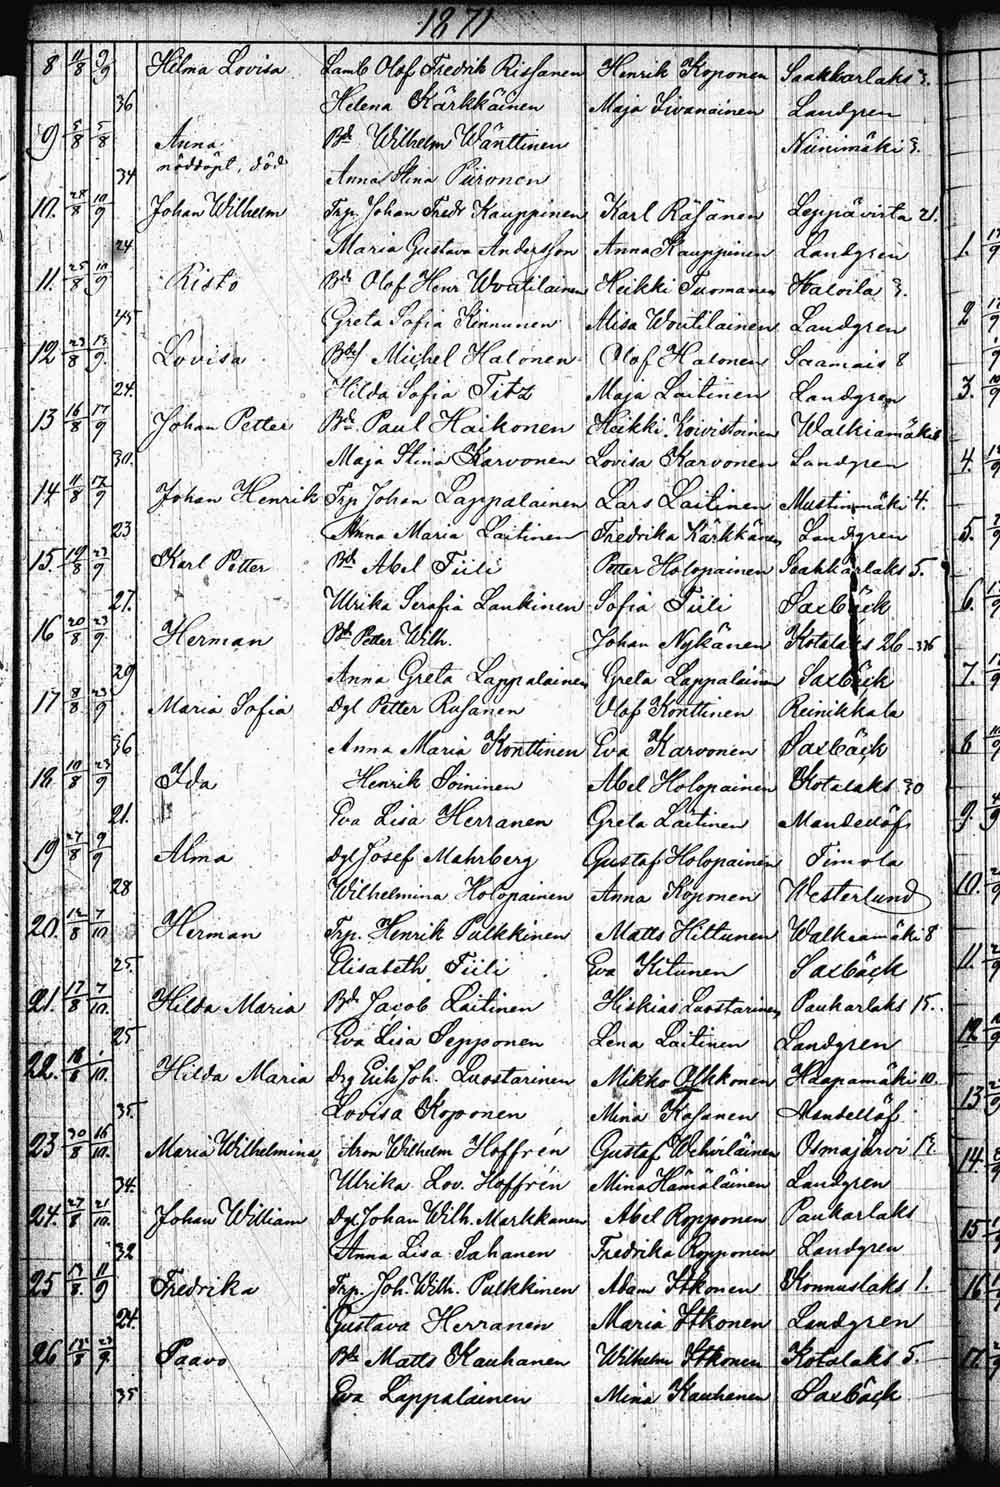 1871
8 11/8 9/9 Hilma Lovisa Lamb Olof Fredrik Rissanen Henrik Koponen Saahkarlaks 3.
36 Helena Kärkkäinen Maja Livanainen Landgren
9 5/8 5/8 Anna Bd. Wilhelm Wänttinen Niinimäki 3.
nöddöpt, död
34 Anna Stina Piironen
10. 28/8 10/9 Johan Wilhelm Trp. Johan Fredr Kauppinen Karl Räsänen Leppävirta 21.
24 Maria Gustava Andersson Anna Kauppinen Landgren
11. 25/8 10/9 Risto Bd. Olof Henr Woutilainen Heikki Tuomanen Haloila 3.
45 Greta Sofia Kinnunen Misa Woutilainen Landgren
12 23/8 13/9 Lovisa Michel Halonen Olof Halonen Saamais 8
24. Hilda Sofia Titz Maja Laitinen Landgren
13 16/8 17/9 Johan Petter Bd. Paul Haikonen Heikki Koivistoinen Walkiamäki 8
30. Maja Stina Karvonen Lovisa Karvonen Landgren
14. 11/8 17/9 Johan Henrik Trp Johan Lappalainen Lars Laitinen Mustinmäki 4.
23 Anna Maria Laitinen Fredrika Kärkkänen Landgren
15. 19/8 23/9 Karl Petter Bd. Abel Tiili Petter Holopainen Saahkarlaks 5.
27. Ulrika Serafia Laukinen Sofia Tiili Saxbäck
16 20/8 23/9 Herman Bd. Petter Wilh. Johan Nykänen Kotalaks 26
29 Anna Greta Lappalainen Greta Lappalainen Saxbäck
17 8/8 23/9 Maria Sofia Dgl Petter Rusanen Olof Konttinen Reinikkala
36 Anna Maria Konttinen Eva Karvonen Saxbäck
18. 19/8 23/9 Ida Henrik Soininen Abel Holopainen Kotalaks 30
21. Eva Lisa Herranen Greta Laitinen Mandellöf
19 27/8 9/9 Alma Dgl Josef Mahrberg Gustaf Holopainen Timola
28 Wilhelmina Holopainen Anna Koponen Westerlund
20. 12/8 7/10 Herman Trp. Henrik Pulkkinen Matts Hiltunen Walkeamäki 8
25. Elisabeth Tiili Eva Kitunen Saxbäck
21. 17/8 7/10. Hilda Maria Bd. Jacob Laitinen Hiskias Luostarinen Paukarlaks 15.
25 Eva Lisa Sepponen Lena Laitinen Landgren
22. 16/8 1/10. Hilda Maria Drg Erik Joh. Luostarinen Mikko Olkkonen Haapamäki 10.
35. Lovisa Koponen Mina Kosanen Mandellöf
23 30/8 16/10. Maria Wilhelmina Aron Wilhelm Hoffrén Gustaf Wehviläinen Osmajärvi 13.
34. Ulrika Lov. Hoffrén Mina Hämäläinen Landgren
24. 27/8 21/10. Johan William Dgl Johan Wilh. Markkanen Abel Ropponen Paukarlaks
32 Anna Lisa Sahanen Fredrika Ropponen Landgren
25 13/8 11/9 Fredrika Trp. Joh. Wilh. Pulkkinen Adam Itkonen Konnuslaks 1.
24. Gustava Herranen Maria Itkonen Landgren
26 12/8 23/9 Paavo Bd. Matts Kauhanen Wilhelm Itkonen Kotalaks 5.
35 Eva Lappalainen Mina Kauhanen Saxbäck